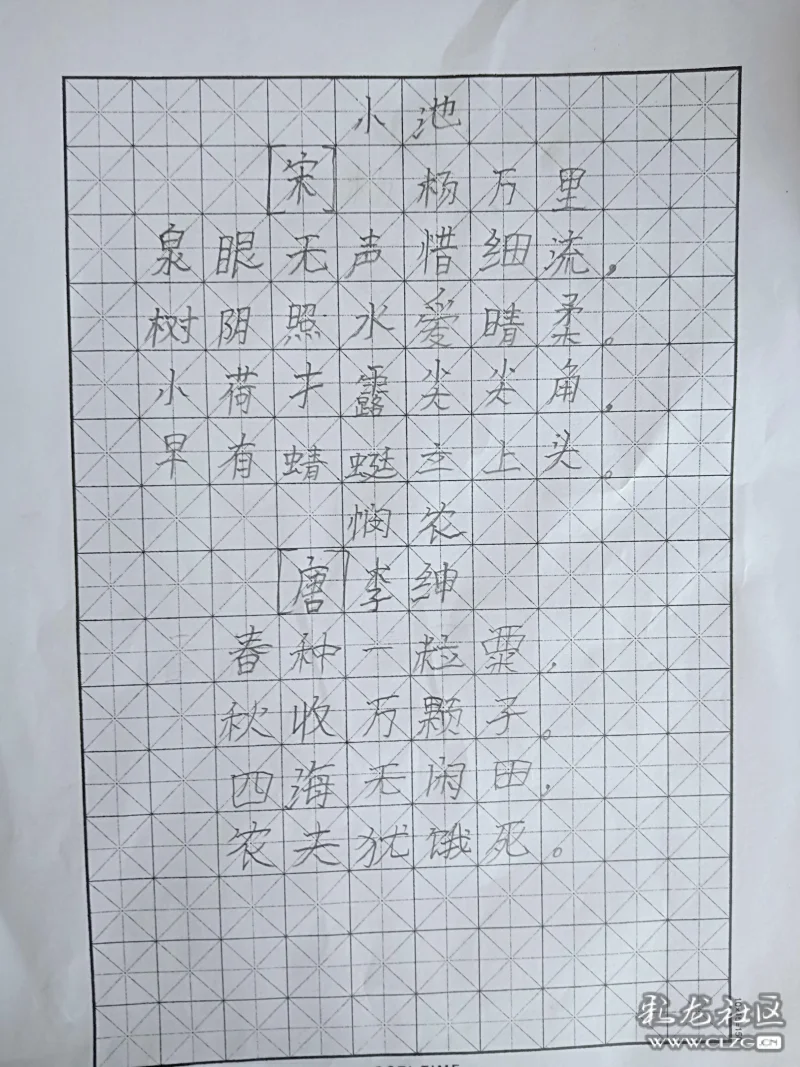 小池
[宋] 杨万里
泉眼无声惜细流，
树阴照水爱晴柔。
小荷才露尖尖角，
早有蜻蜓立上头。
悯农
[唐]李绅
春种一粒粟，
秋收万颗子。
四海无闲田，
农夫犹饿死。
化龙社区
www.CLZG.CN